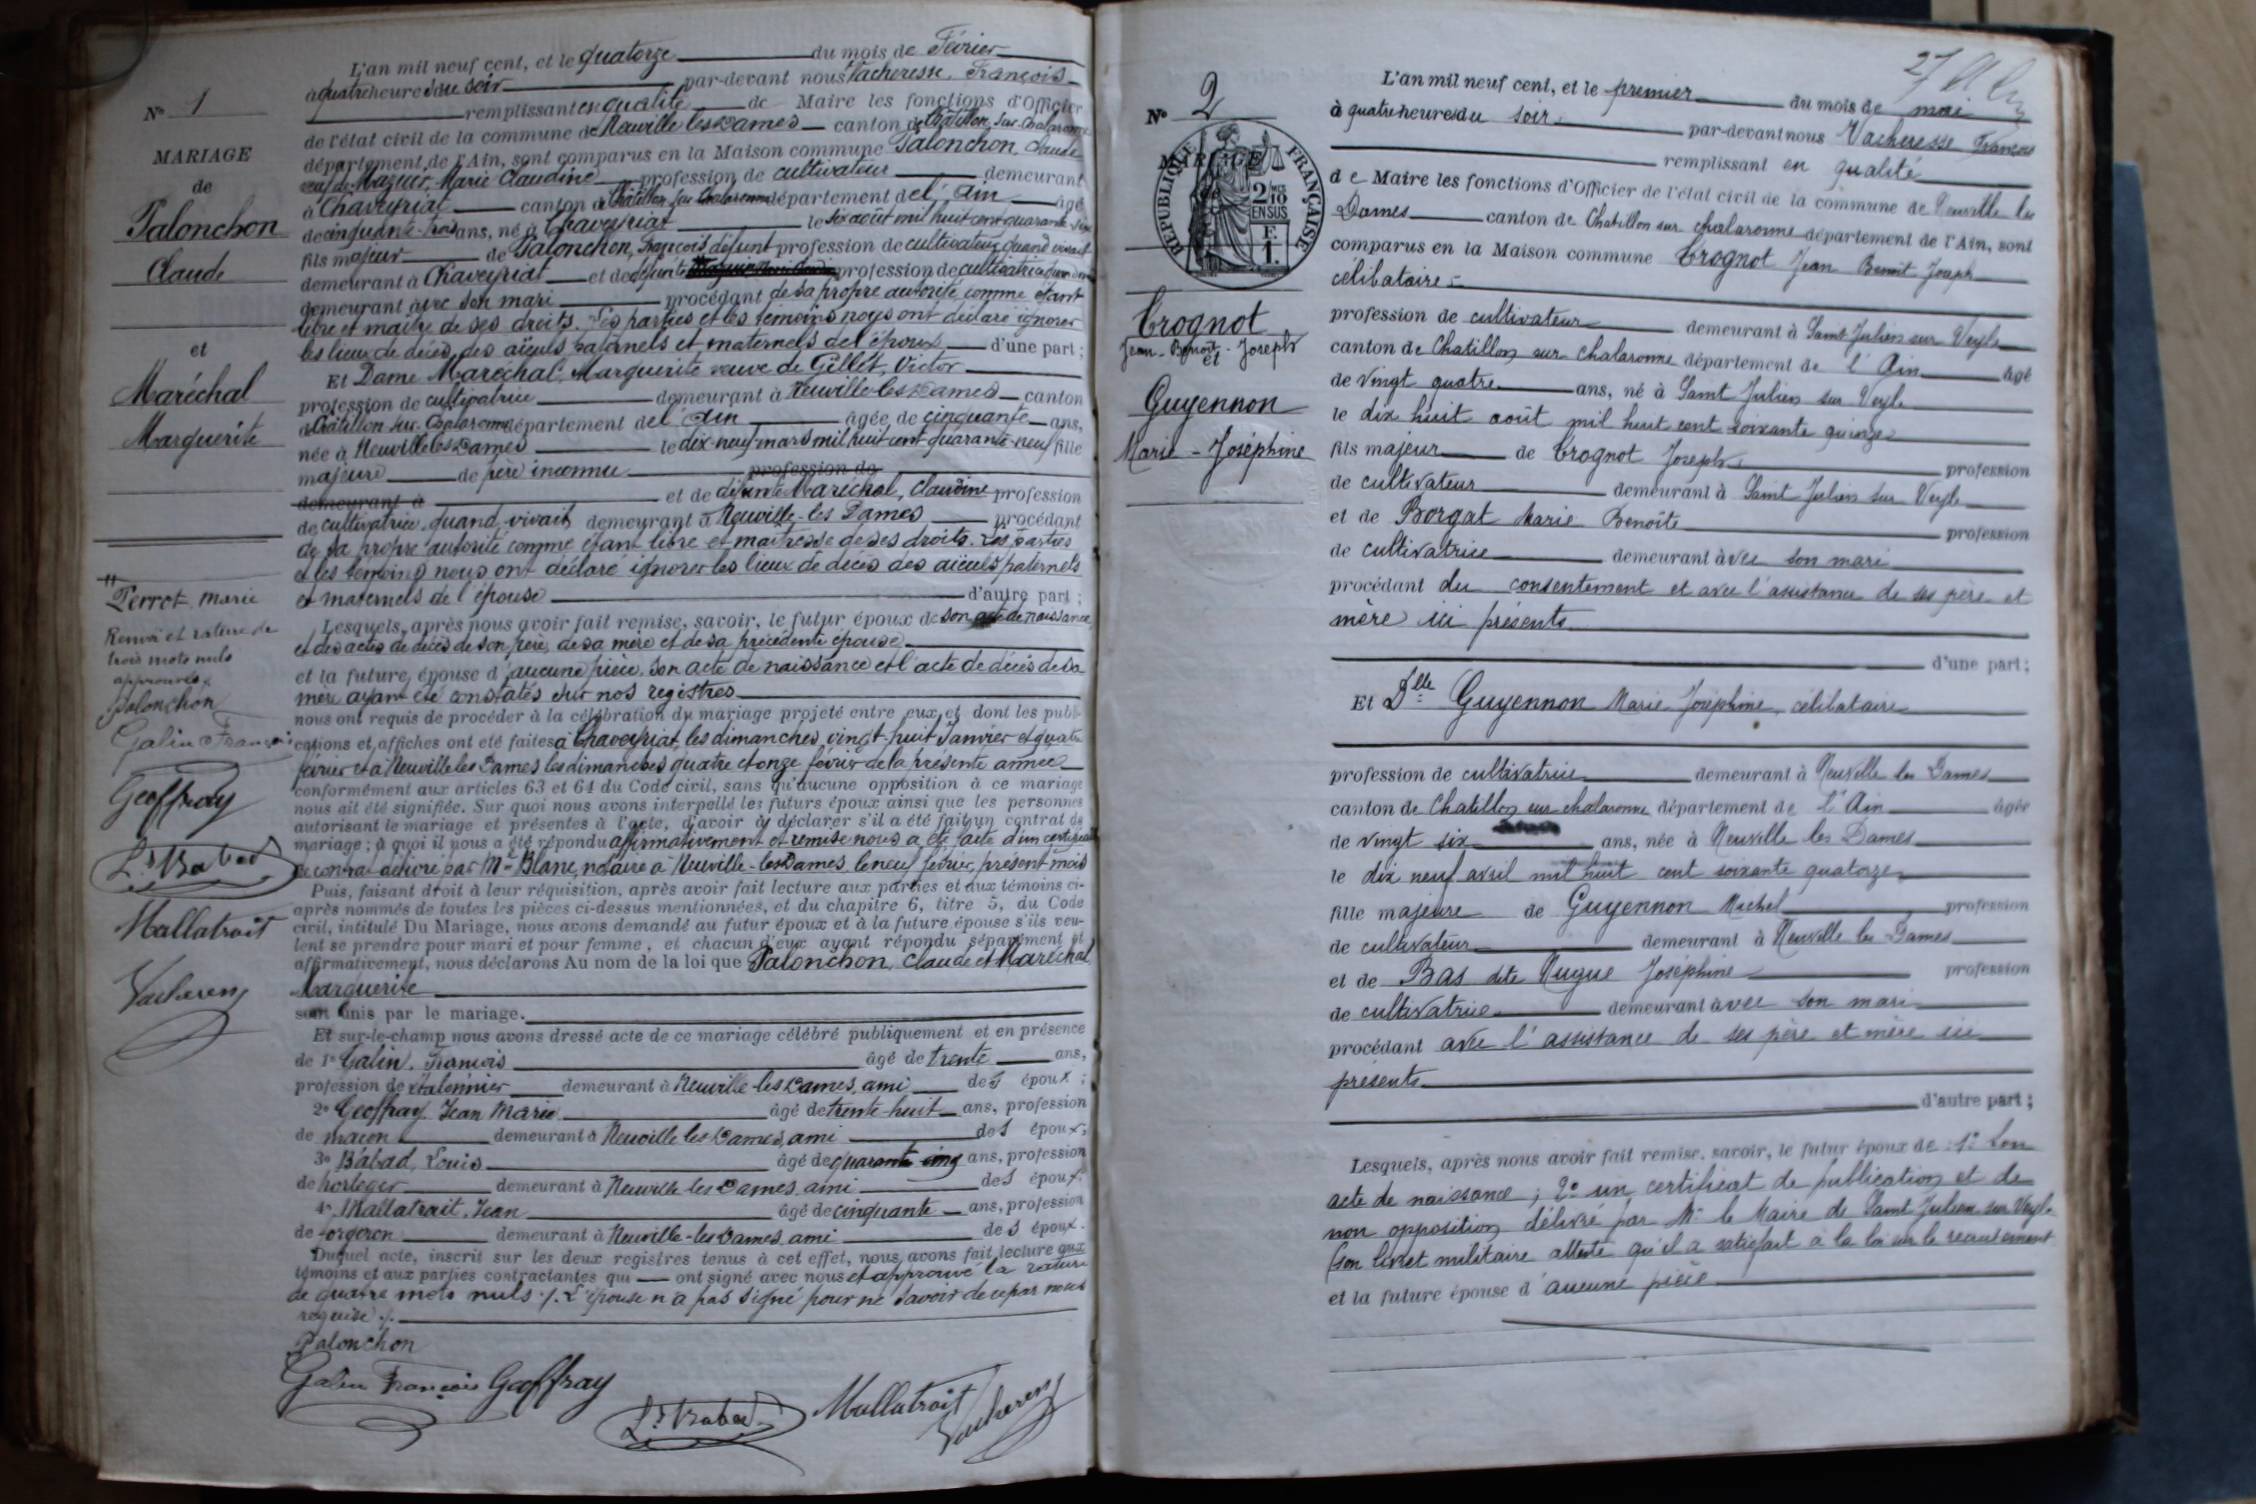 N° 1
MARIAGE
de
Palonchon
Claude
et
Maréchal
Marguerite
"
Perrot marie
Renvoi et rature de
trois mots nuls
approuvés
Palonchon
Galin François
Geoffray
Ls Babad
Mallatrait
Vacheresse
L'an mil neuf cent, et le quatorze du mois de Février
à quatre heures du soir par-devant nous Vacheresse, François
remplissant en qualité de Maire les fonctions d'Officier
de l'état civil de la commune de Neuville les Dames canton de Châtillon sur Chalaronne
département de l'Ain, sont comparus en la Maison commune Palonchon, Claude
veuf de Marie Claudine profession de cultivateur demeurant
à Chaveyriat canton de Châtillon sur Chalaronne département de l'Ain âgé
de cinquante-trois ans, né à Chaveyriat le six août mil huit cent quarante-six
fils majeur de Palonchon, François défunt profession de cultivateur quand vivait
demeurant à Chaveyriat et de défunte profession de cultivatrice
demeurant avec son mari procédant de sa propre autorité comme étant
libre et maître de ses droits. Les parties et les témoins nous ont déclaré ignorer
les lieux de décès des aïeuls paternels et maternels de l'époux d'une part ;
Et Dame Maréchal, Marguerite veuve de Gillet, Victor
profession de cultivatrice demeurant à Neuville-les-Dames canton
de Châtillon sur Chalaronne département de l'Ain âgée de cinquante ans,
née à Neuville les Dames le dix-neuf mars mil huit cent quarante-neuf fille
majeure de père inconnu profession de
demeurant à et de défunte Maréchal, Claudine profession
de cultivatrice quand vivait demeurant à Neuville-les Dames procédant
de sa propre autorité comme étant libre et maîtresse de ses droits. Les parties
et les témoins nous ont déclaré ignorer les lieux de décès des aïeuls paternels
et maternels de l'épouse d'autre part ;
Lesquels, après nous avoir fait remise, savoir, le futur époux de son acte de naissance
et des actes de décès de son père, de sa mère et de sa précédente épouse
et la future épouse d'aucune pièce, son acte de naissance et l'acte de décès de sa
mère ayant été constatés sur nos registres
nous ont requis de procéder à la célébration du mariage projeté entre eux et dont les publi-
cations et affiches ont été faites à Chaveyriat les dimanches vingt-huit Janvier et quatre
février et à Neuville les Dames les dimanches quatre et onze février de la présente année
conformément aux articles 63 et 64 du Code civil, sans qu'aucune opposition à ce mariage
nous ait été signifiée. Sur quoi nous avons interpellé les futurs époux ainsi que les personnes
autorisant le mariage et présentes à l'acte, d'avoir à déclarer s'il a été fait un contrat de
mariage ; à quoi il nous a été répondu affirmativement et remise nous a été faite d'un certificat
de contrat délivré par Me Blanc, notaire à Neuville-les-Dames, le neuf février, présent mois
Puis, faisant droit à leur réquisition, après avoir fait lecture aux parties et aux témoins ci-
après nommés de toutes les pièces ci-dessus mentionnées, et du chapitre 6, titre 5, du Code
civil, intitulé Du Mariage, nous avons demandé au futur époux et à la future épouse s'ils veu-
lent se prendre pour mari et pour femme, et chacun d'eux ayant répondu séparément et
affirmativement, nous déclarons Au nom de la loi que Palonchon, Claude et Maréchal
Marguerite
sont unis par le mariage.
Et sur-le-champ nous avons dressé acte de ce mariage célébré publiquement et en présence
de 1° Galin, François âgé de trente ans,
profession de demeurant à Neuville-les-Dames, ami des époux ;
2° Geoffray Jean Marie âgé de trente-huit ans, profession
de maçon demeurant à Neuville les Dames, ami des époux ;
3° Babad, Louis âgé de quarante cinq ans, profession
de horloger demeurant à Neuville les Dames, ami des époux ;
4° Mallatrait, Jean âgé de cinquante ans, profession
de forgeron demeurant à Neuville-les Dames, ami des époux.
Duquel acte, inscrit sur les deux registres tenus à cet effet, nous avons fait lecture aux
témoins et aux parties contractantes qui ont signé avec nous et approuvé la rature
de quatre mots nuls ./. L'épouse n'a pas signé pour ne savoir de ce par nous
requise ./.
Palonchon
Galin François Geoffray
Ls Babad Mallatrait Vacheresse
27
N° 2
MARIAGE
RÉPUBLIQUE FRANÇAISE
2/10 EN SUS
F.
1.
Crognot
Jean-Benoît-Joseph
et
Guyennon
Marie-Joséphine
L'an mil neuf cent, et le premier du mois de mai
à quatre heures du soir par-devant nous Vacheresse François
remplissant en qualité
de Maire les fonctions d'Officier de l'état civil de la commune de Neuville les
Dames canton de Chatillon sur chalaronne département de l'Ain, sont
comparus en la Maison commune Crognot Jean Benoît Joseph
célibataire
profession de cultivateur demeurant à Saint Julien sur Veyle
canton de Chatillon sur chalaronne département de l'Ain âgé
de vingt quatre ans, né à Saint Julien sur Veyle
le dix huit août mil huit cent soixante quinze
fils majeur de Crognot Joseph profession
de cultivateur demeurant à Saint Julien sur Veyle
et de Borgat Marie Benoîte profession
de cultivatrice demeurant avec son mari
procédant du consentement et avec l'assistance de ses père et
mère ici présents
d'une part ;
Et Dlle Guyennon Marie Joséphine, célibataire
profession de cultivatrice demeurant à Neuville les Dames
canton de Chatillon sur chalaronne département de l'Ain âgée
de vingt six ans, née à Neuville les Dames
le dix neuf avril mil huit cent soixante quatorze
fille majeure de Guyennon Michel profession
de cultivateur demeurant à Neuville les Dames
et de Bas dite Nugue Joséphine profession
de cultivatrice demeurant avec son mari
procédant avec l'assistance de ses père et mère ici
présents
d'autre part ;
Lesquels, après nous avoir fait remise, savoir, le futur époux de : 1° Son
acte de naissance ; 2° un certificat de publication et de
non opposition délivré par Mr le Maire de Saint Julien sur Veyle
Son livret militaire atteste qu'il a satisfait à la loi sur le recrutement
et la future épouse d'aucune pièce